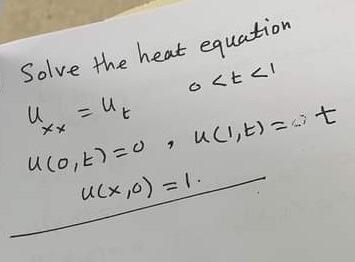 Solve the heat equation
u_xx = u_t 0 < t < 1
u(0,t) = 0 , u(1,t) = t
u(x,0) = 1.